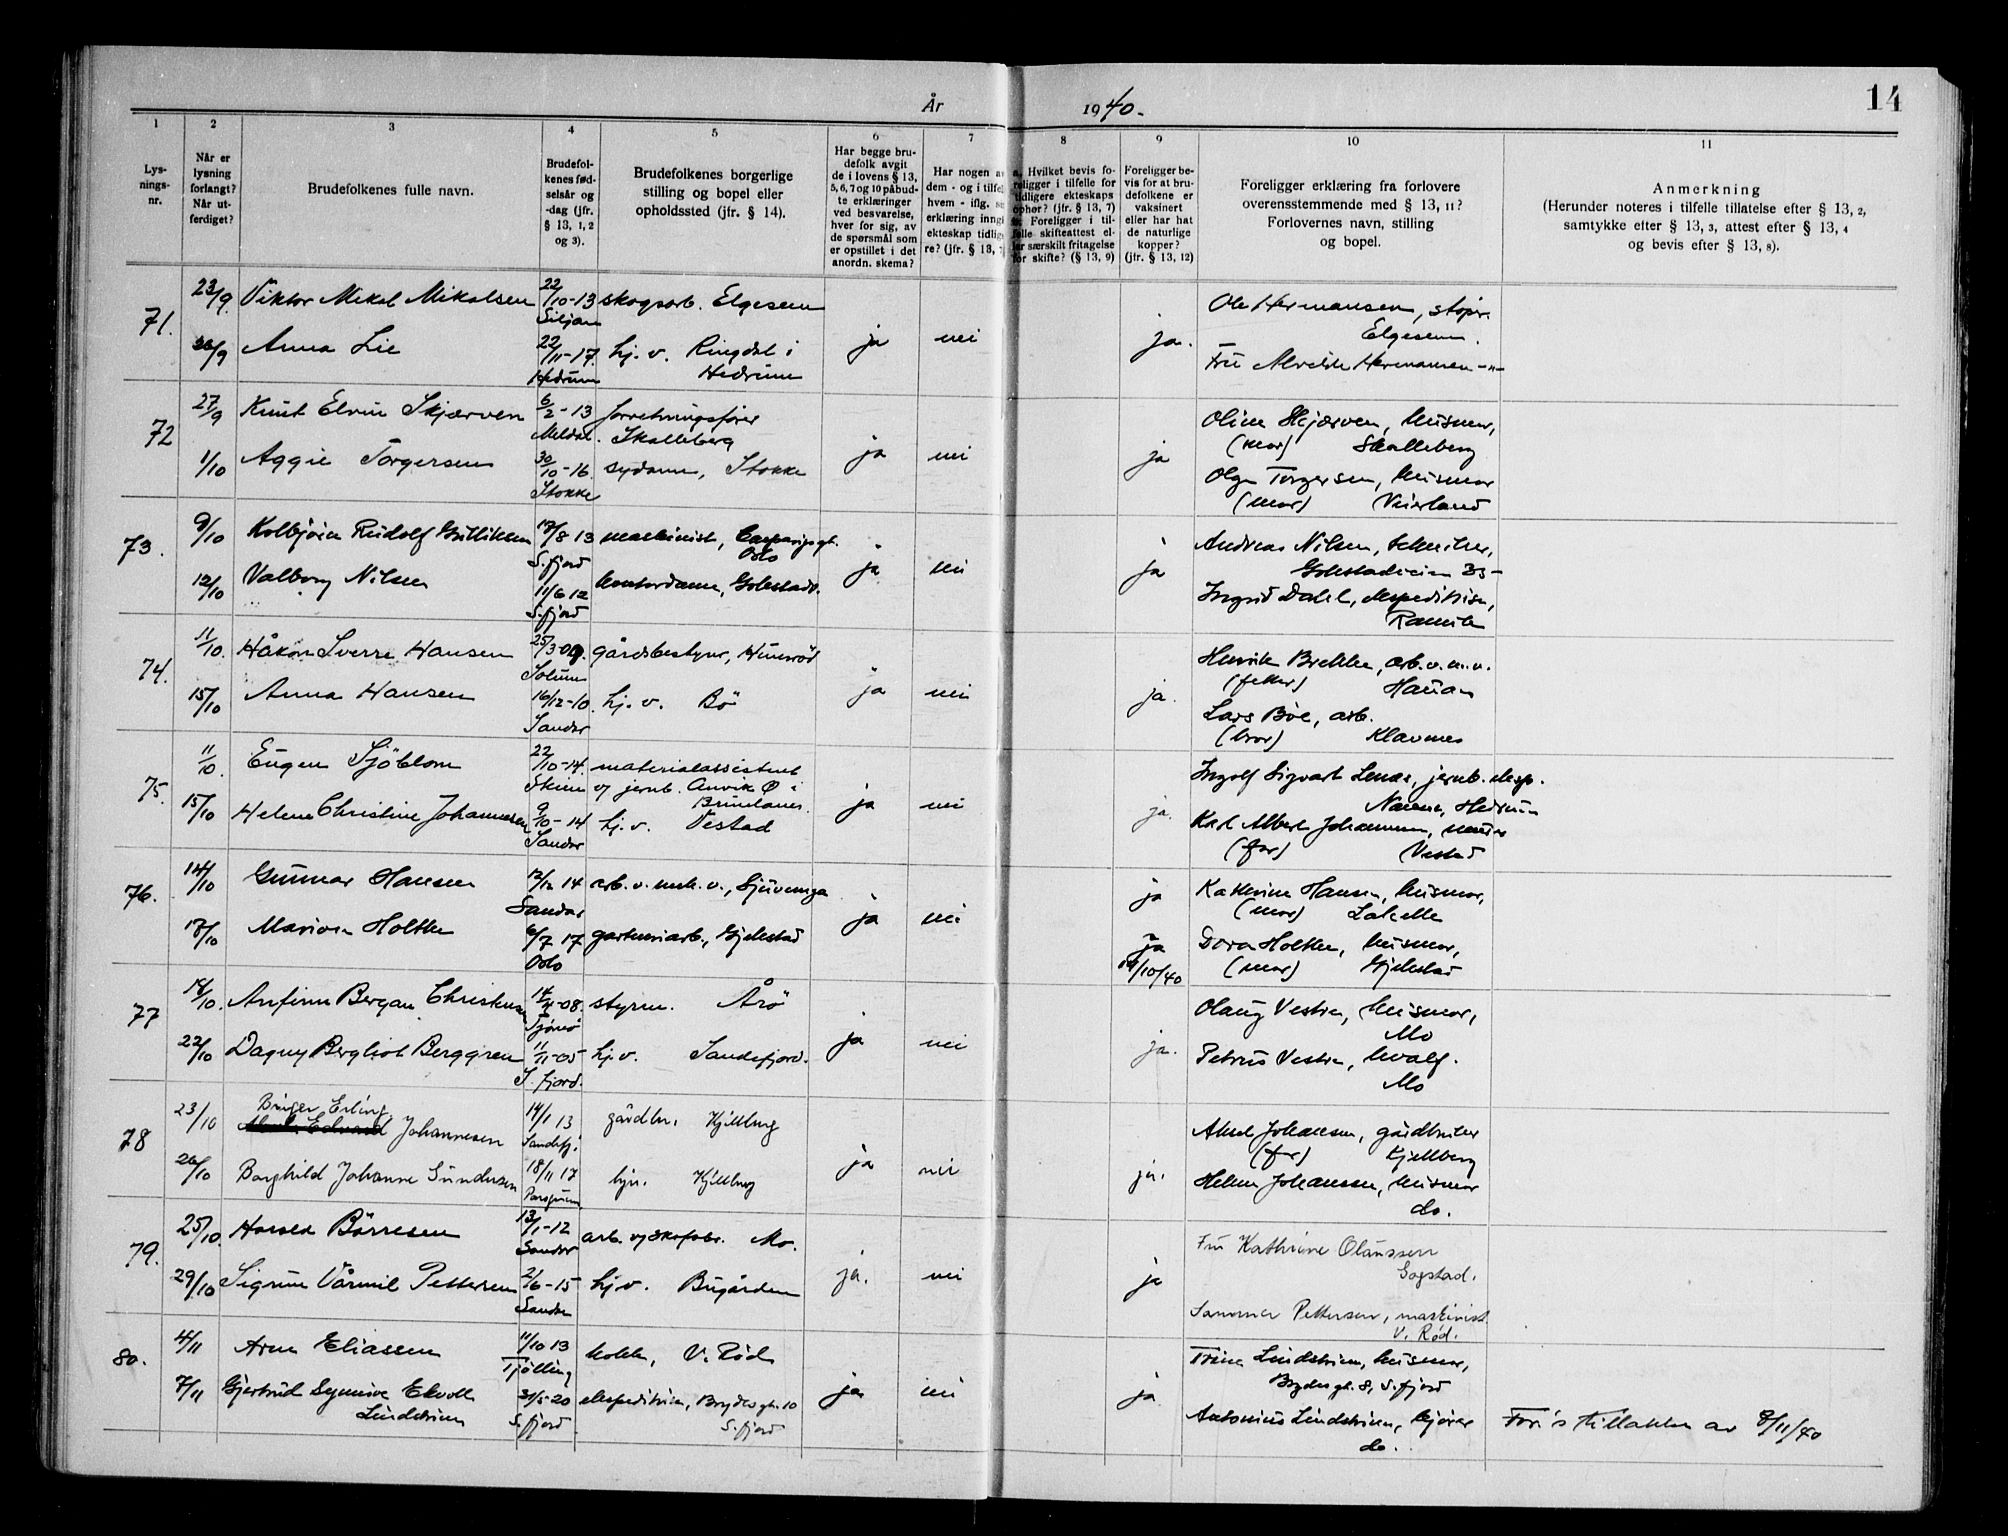 År 1940.
14
1 2 3 4 5 6 7 8 9 10 11
Lys-
nings-
nr.
Når er
lysning
forlangt?
Når ut-
ferdiget?
Brudefolkenes fulle navn.
Brudefol-
kenes fød-
selsår og
-dag (jfr.
§ 13, 1, 2
og 3).
Brudefolkenes borgerlige
stilling og bopel eller
opholdssted (jfr. § 14).
Har begge bru-
defolk avgit
de i lovens § 13,
5, 6, 7 og 10 påbud-
te erklæringer
ved besvarelse,
hver for sig, av
de spørsmål som
er opstillet i det
anordn. skema?
Har nogen av
dem - og i tilfel
hvem - iflg.
erklæring inngå
ekteskap tidlig
re? (jfr. § 13, 7
a. Hvilket bevis fo-
religger i tilfelle for
tidligere ekteskaps
ophør? (jfr. § 13, 7)
Foreligger i til-
felle skifteattest el-
ler særskilt fritagelse
for skifte? (§ 13, 9)
Foreligger be-
vis for at bru-
defolkene er
vaksinert
eller har hat
de naturlige
kopper?
(jfr. § 13, 12)
Foreligger erklæring fra forlovere
overensstemmende med § 13, 11?
Forlovernes navn, stilling
og bopel.
Anmerkning
(Herunder noteres i tilfelle tillatelse efter § 13, 2,
samtykke efter § 13, 3, attest efter § 13, 4
og bevis efter § 13, 8).
71. 23/9. Viktor Mikal Mikalsen 22/10-13 skogsarb. Elgesem
Siljan
26/9 Anna Lie 22/11-17. hj. v. Ringdal i
Hedrum Hedrum
ja nei ja.
Ole Hermansen, støper.
Elgesem.
Fru Alvilde Hermansen -"-
72 27/9 Knut Elvin Skjærven 6/2-13 forretningsfører
Meldal. Skalleberg
1/10 Aggie Torgersen 30/10-16 sydame, Stokke
Stokke
ja nei ja
Oline Skjærven, husmor,
(mor) Skalleberg
Olga Torgersen, husmor
(mor) Veierland
73. 9/10 Kolbjörn Rudolf Gulliksen 17/8 13 maskinist,
Oslo
S.fjord
12/10 Valborg Nilsen 11/6 12 kontordame, Gokstadv.
S.fjord
ja nei ja
Andreas Nilsen,
Gokstadveien 33-
Ingrid Dahl, ekspeditrise,
74. 11/10. Håkon Sverre Hansen 25/3-09. gårdsbestyrer,
Solum
15/10 Anna Hansen 16/12-10. hj. v. Bö
Sandar
ja nei ja.
Henrik Brekke, arb. v. m.v.
(fetter) Hauan
Lars Bøe, arb.
(bror) Klavenes
75. 11/10. Eugen Sjöblom 22/10-14. materialassistent
Skien v/ jernb. Anvik Ø i
Brunlanes.
15/10 Helene Christine Johannesen 9/10-14 hj. v. Vestad
Sandar
ja nei ja.
Ingolf Sigvart Lenæs, jernb. eksp.
Hedrum
Karl Albert Johannessen, murer
(far) Vestad
76. 14/10 Gunnar Hansen 12/12 14 arb. v. mek. v.,
Sandar
17/10 Marion Holtke 6/7 17 gartneriarb., Gjekstad
Oslo
ja nei ja
Kathrine Hansen, husmor,
(mor) Lahelle
ja
19/10/40
Dora Holtke, husmor,
(mor) Gjekstad
77 18/10. Arnfinn Bergan Christensen 14/11-08. styrm. Årö
Tjömö
22/10 Dagny Bergliot Berggren 11/11-05 hj.v. Sandefjord.
S.fjord.
ja nei ja.
Olaug Vestre, husmor,
Mo
Petrus Vestre, hvalf.
Mo
78 23/10 Birger Erling
Johannesen 14/1 13 gårdbr. Kjellberg
Sandefj.
26/10 Borghild Johanne Gundersen 18/11 17 hjv. Kjellberg
Porsgrunn
ja nei ja.
Aksel Johansen, gårdbruker
(far) Kjellberg
Helene Johanssen, husmor
do.
79. 25/10. Harald Börresen 13/1-12 arb. v/ skofabr. Mo.
Sandar
29/10 Sigrun Vårmil Pettersen 21/6-15 hj.v. Bugården
Sandar
ja. nei ja
Fru Kathrine Olaussen
Gogstad.
Sommer Pettersen, maskinist.
V. Rød.
80. 4/11 Arne Eliassen 11/10 13 kokk, V. Rød
Tjölling
7/11 Gjertrud Synnöve Ekvoll 31/5-20 ekspeditrise, Brydes gt. 10
Lindstrøm S.fjord. S.fjord
ja nei ja
Trine Lindstrøm, husmor,
Brydes gt. 8, S.fjord
Antonius Lindstrøm, kjører
do.
For's tillatelse av 8/11/40